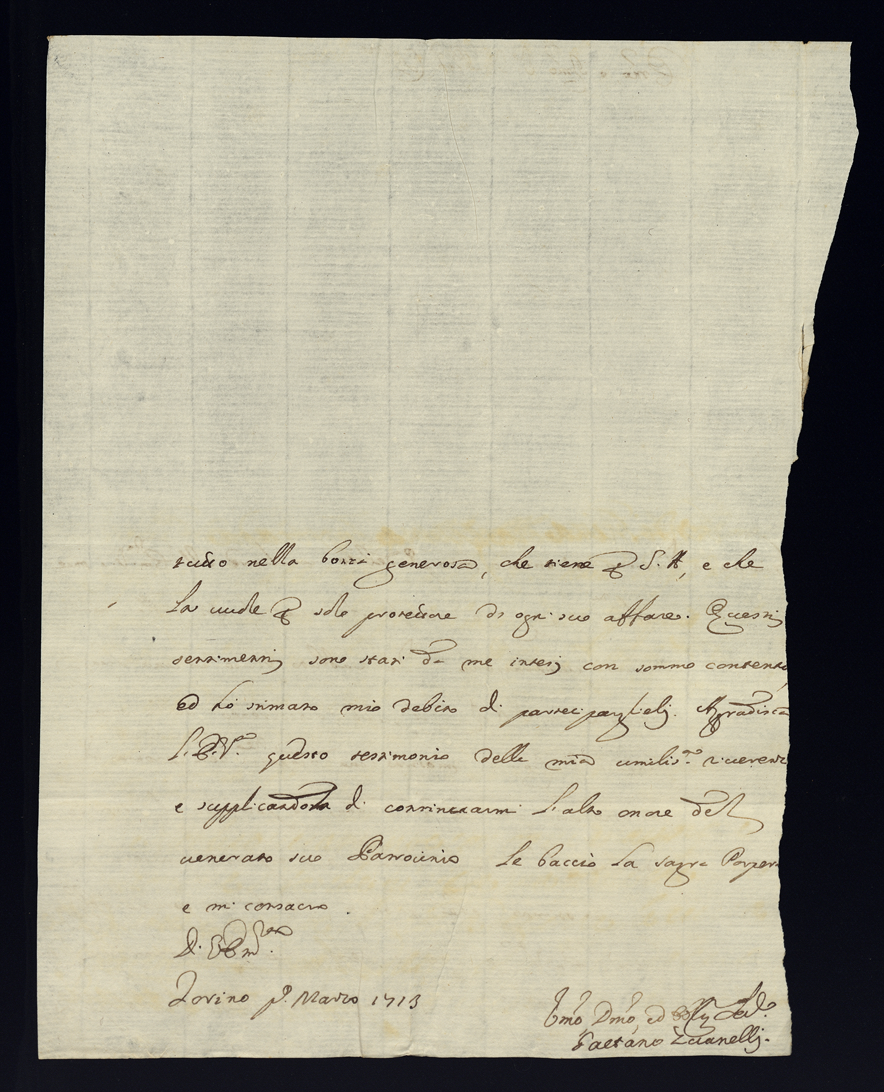 tutto nella bontà generosa, che tiene per S. A., e che
La vuole per solo protettore di ogni suo affare. Questi
sentimenti sono stati da me intesi con sommo contento,
ed hò stimato mio debito di parteciparglieli. Aggradisca
l'E. V.ra questo testimonio della mia umilis.ma riverenz
e supplicandola di continuarmi l'alto onore del
venerato suo Patrocinio Le baccio La sagra Porpora
e mi consacro.
Di V. Em.za
Torino p.o Marzo 1713
Umo, Dmo, ed
Gaetano